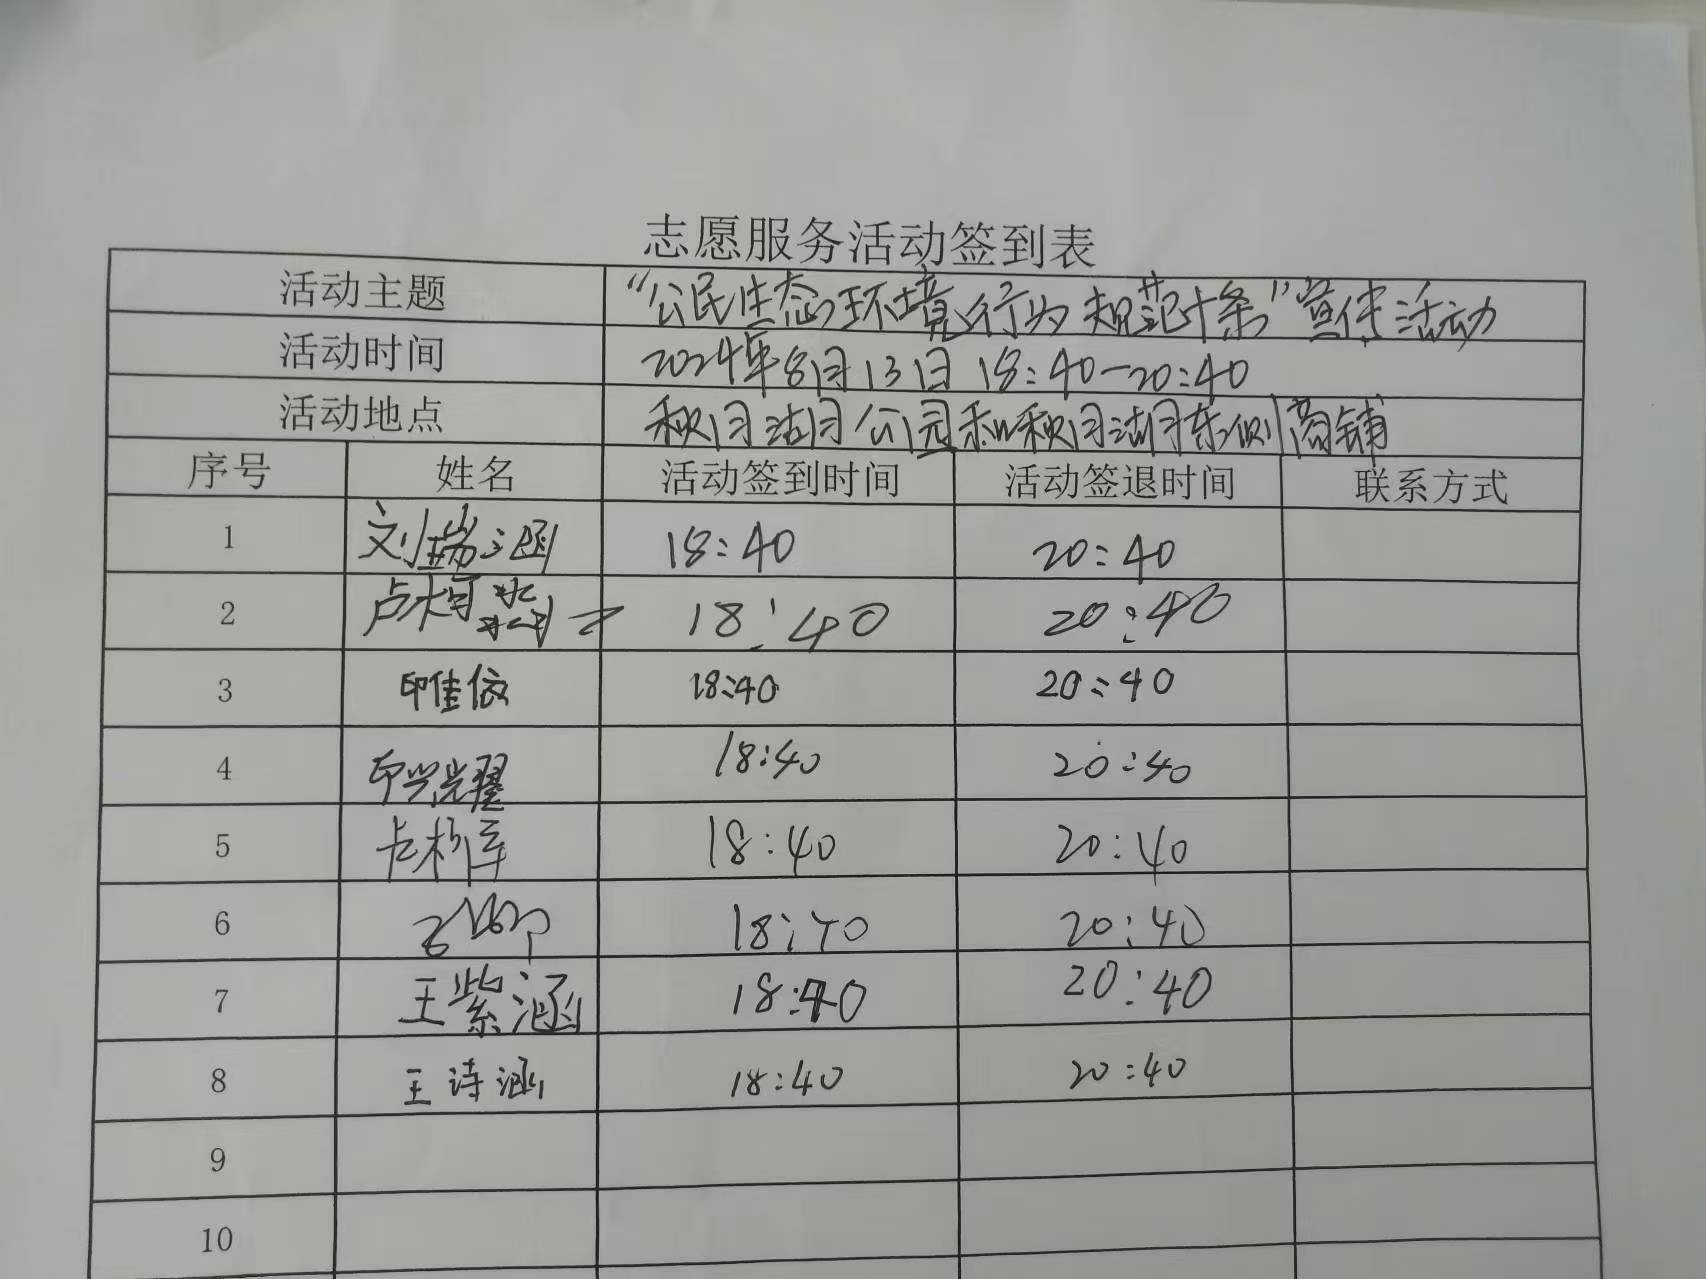 志愿服务活动签到表
活动主题 “公民生态环境行为规范十条”宣传活动
活动时间 2024年8月13日 18:40-20:40
活动地点 秋月湖公园和秋月湖东侧商铺
序号 姓名 活动签到时间 活动签退时间 联系方式
1 刘瑞涵 18:40 20:40
2 18:40 20:40
3 印佳依 18:40 20:40
4 印兴耀 18:40 20:40
5 18:40 20:40
6 18:40 20:40
7 王紫涵 18:40 20:40
8 王诗涵 18:40 20:40
9
10